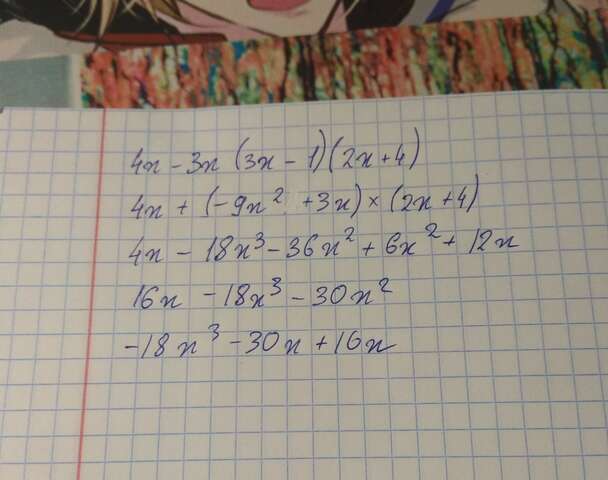 4x - 3x (3x - 1)(2x + 4)
4x + (-9x² + 3x) × (2x + 4)
4x - 18x³ - 36x² + 6x² + 12x
16x - 18x³ - 30x²
-18x³ - 30x + 16x